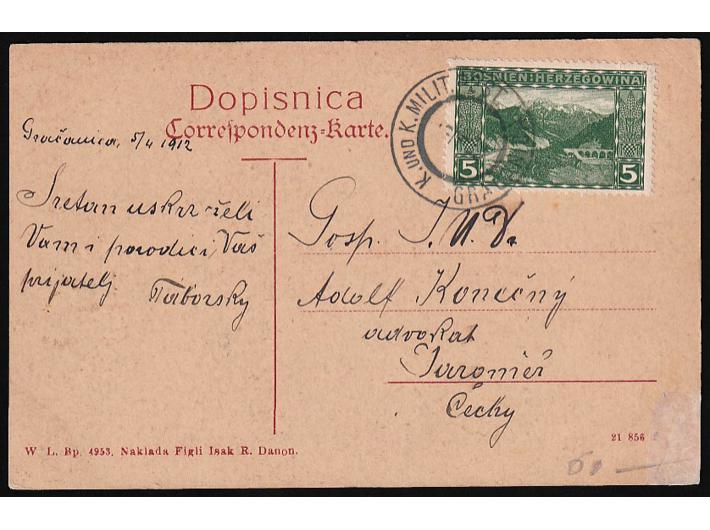 Dopisnica
Correspondenz-Karte.
BOSNIEN-HERZEGOWINA
5 5
K. UND K. MILIT.
GRA
Gračanica, 5/4 1912
Sretan uskrs želi
Vam i porodici Vaš
prijatelj
Táborsky
Gosp. J.U.Dr
Adolf Konečný
advokat
Jaroměř
Čechy
W. L. Bp. 4953. Naklada Figli Isak R. Danon.
21 856